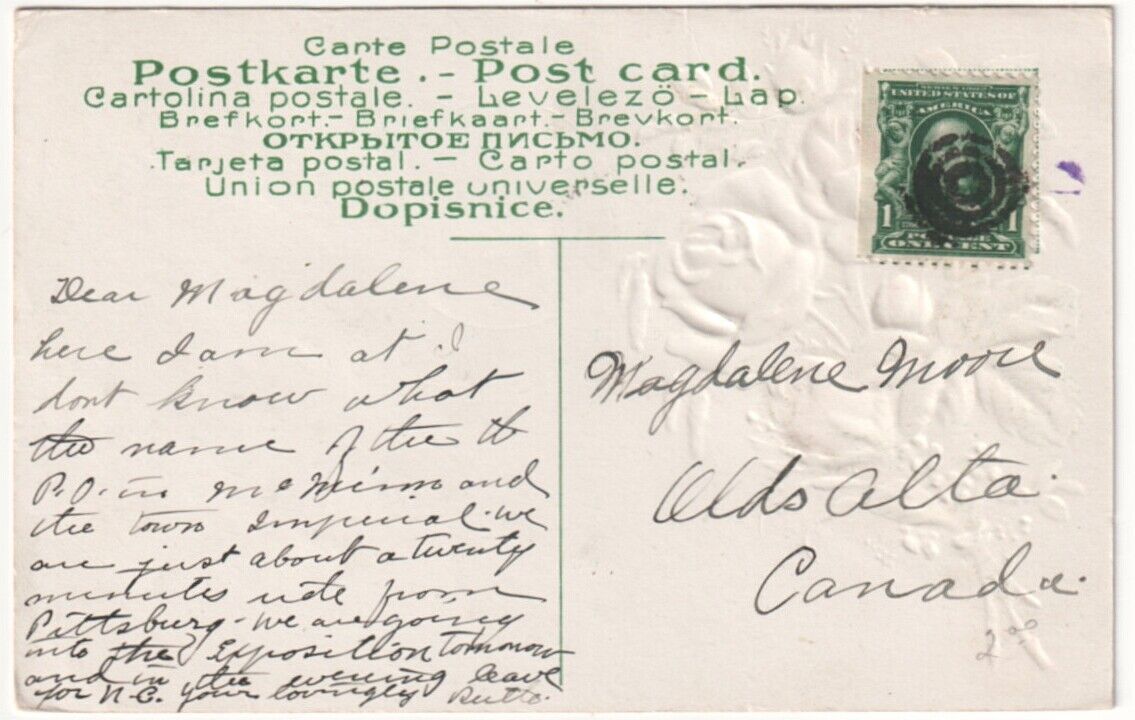 Carte Postale
Postkarte. - Post card.
Cartolina postale. - Levelezö - Lap.
Brefkort. - Briefkaart. - Brevkort.
ОТКРЫТОЕ ПИСЬМО.
Tarjeta postal. - Carto postal.
Union postale universelle.
Dopisnice.
UNITED STATES OF
AMERICA
1 1
POSTAGE
ONE CENT
Dear Magdalene
here I am at I
dont know what
the name of the
P.O. in and
the town Imperial. we
are just about a twenty
minutes ride from
Pittsburg. We are going
into the Exposition tomorrow
and in the evening leave
for N.C. your lovingly
Magdalene Moore
Olds Alta.
Canada.
2 00